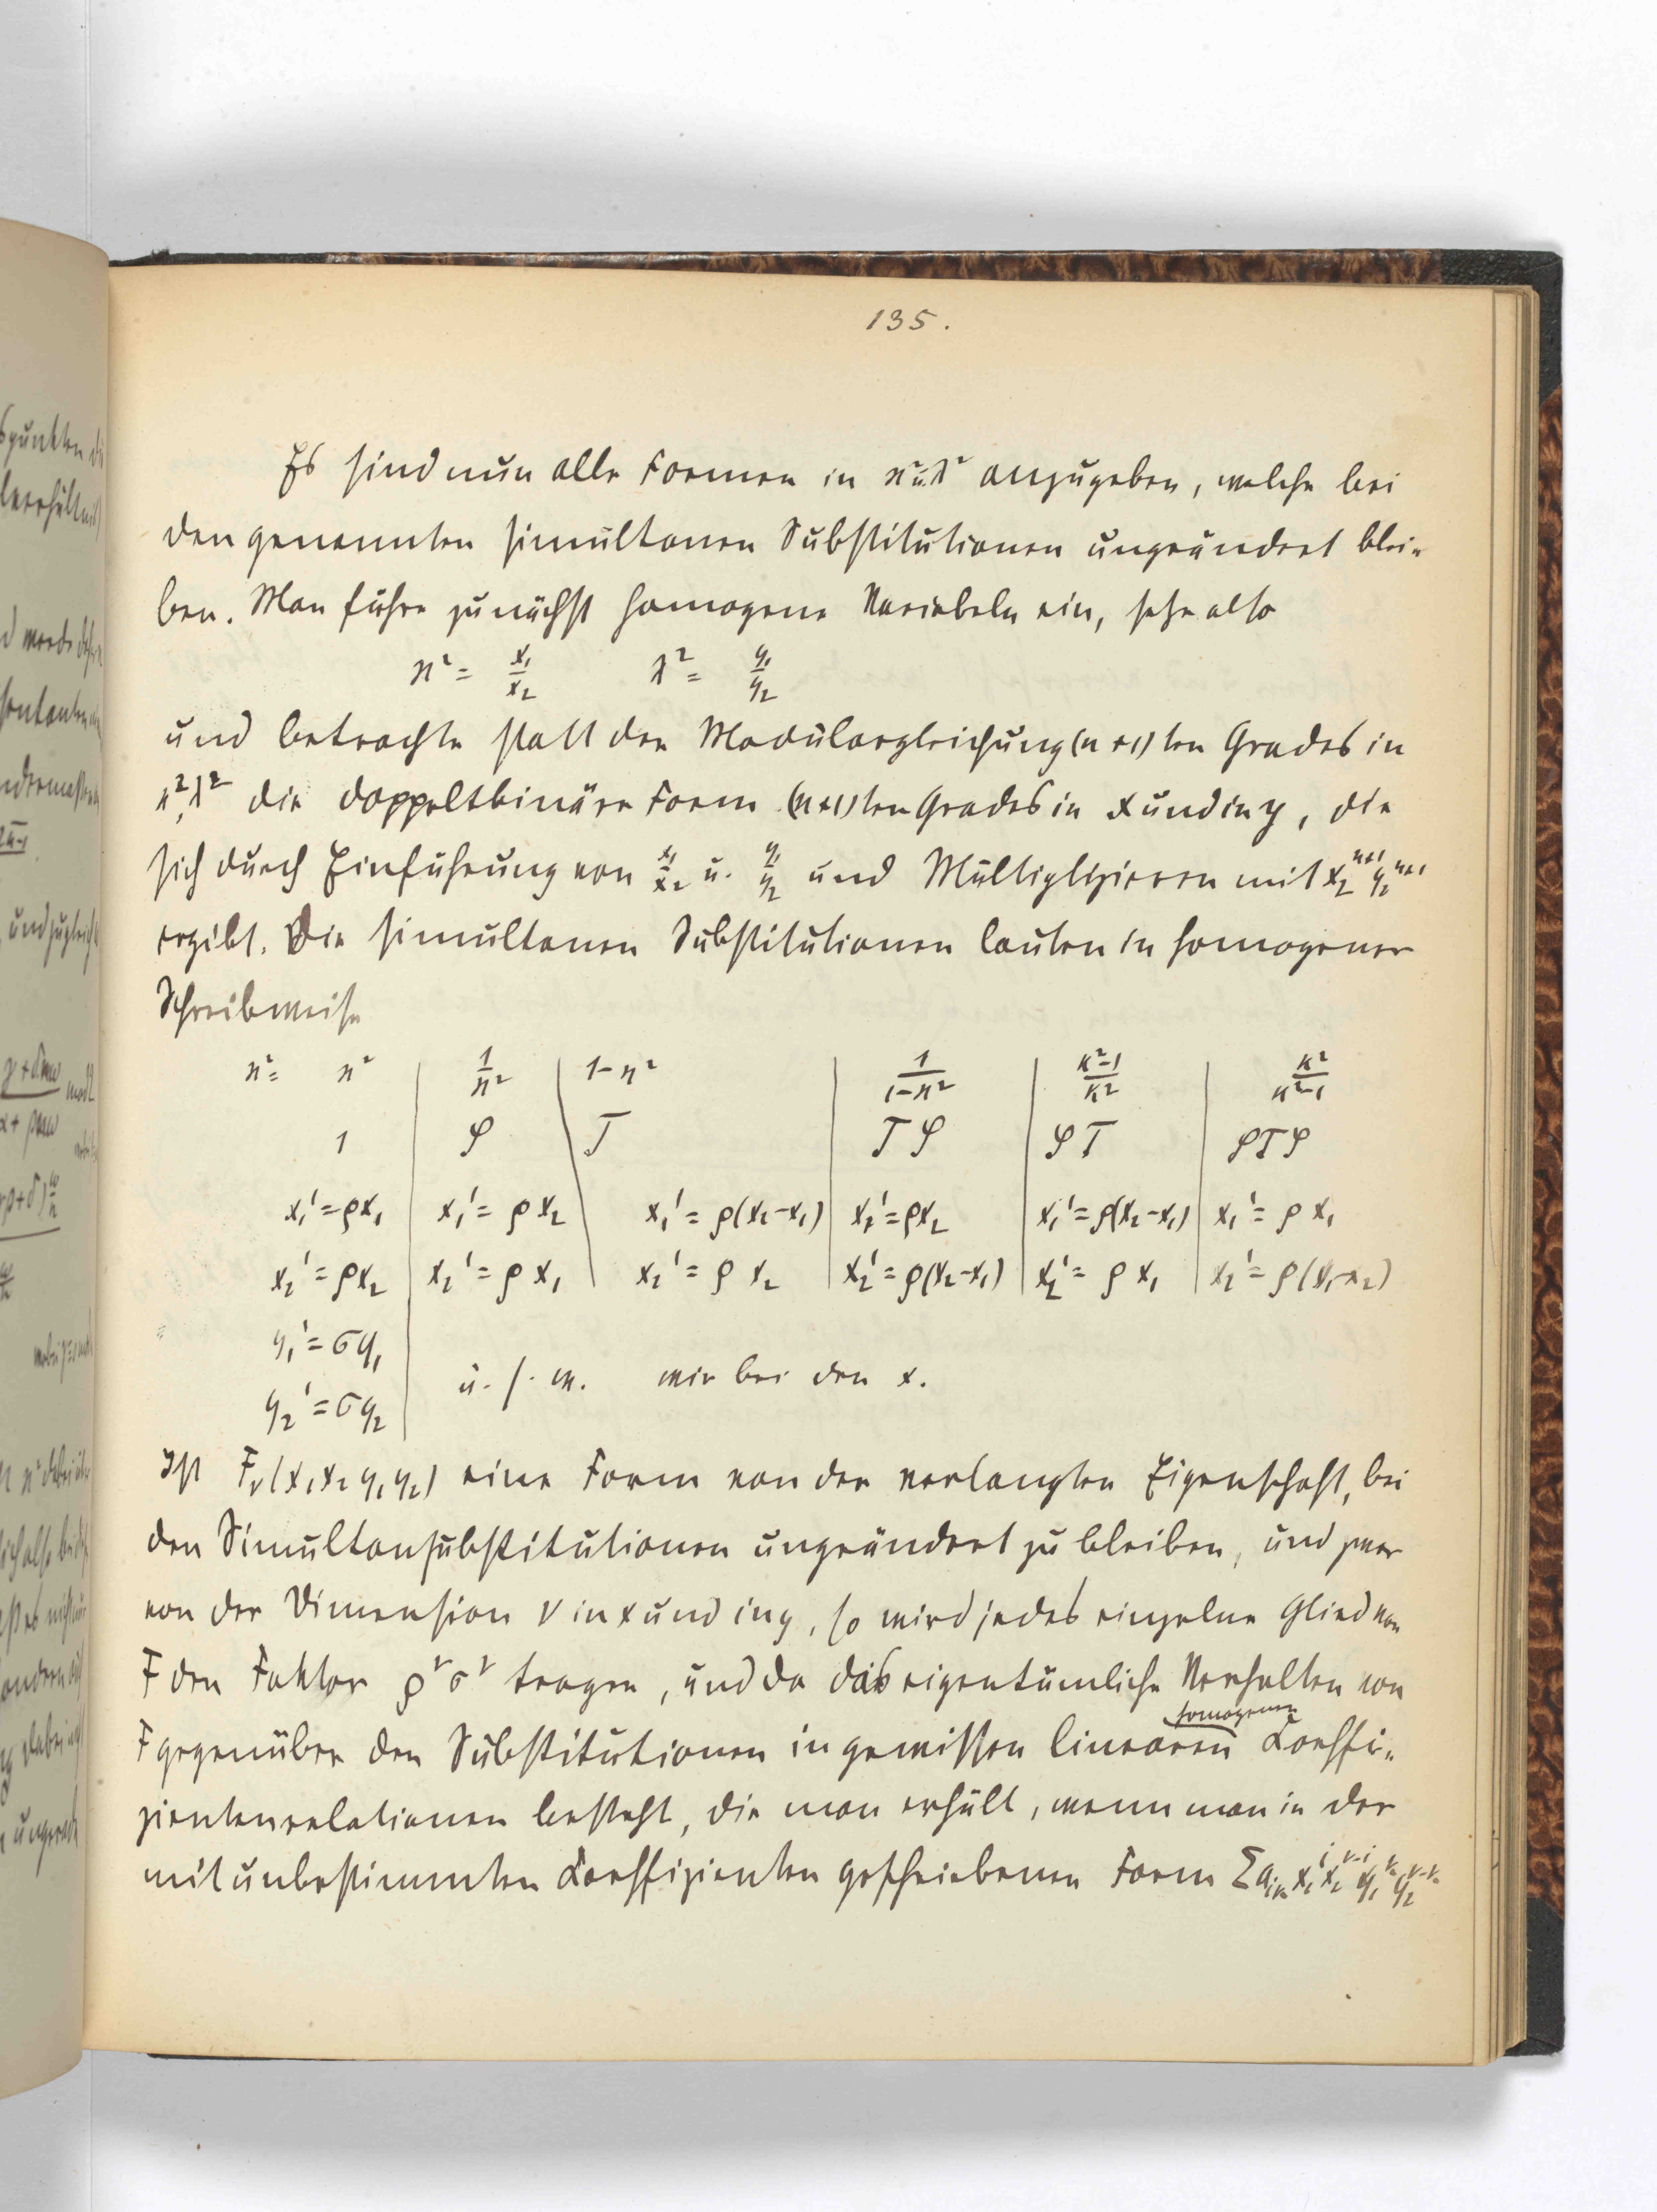 135.
Es sind nun alle Formen in ϰ² u. λ² anzugeben, welche bei
den genannten simultanen Substitutionen ungeändert blei-
ben. Man führe zunächst homogene Variabeln ein, setze also
ϰ² = x₁/x₂ λ² = y₁/y₂
und betrachte statt der Modulargleichung (n+1)ten Grades in
ϰ², λ² die doppeltbinäre Form (n+1)ten Grades in x und in y, die
sich durch Einführung von x₁/x₂ u. y₁/y₂ und Multiplizieren mit x₂ⁿ⁺¹ y₂ⁿ⁺¹
ergibt. Die simultanen Substitutionen lauten in homogener
Schreibweise
ϰ² = ϰ² | 1/ϰ² | 1-ϰ² | 1/(1-ϰ²) | (ϰ²-1)/ϰ² | ϰ²/(ϰ²-1)
1 | φ | T | Tφ | φT | φTφ
x₁' = ρx₁ | x₁' = ρx₂ | x₁' = ρ(x₂-x₁) | x₁' = ρx₂ | x₁' = ρ(x₂-x₁) | x₁' = ρx₁
x₂' = ρx₂ | x₂' = ρx₁ | x₂' = ρx₂ | x₂' = ρ(x₂-x₁) | x₂' = ρx₁ | x₂' = ρ(x₁-x₂)
y₁' = σy₁
u. s. w. wie bei den x.
y₂' = σy₂
Ist Fν(x₁x₂ y₁y₂) eine Form von der verlangten Eigenschaft, bei
den Simultansubstitutionen ungeändert zu bleiben, und zwar
von der Dimension ν in x und in y, so wird jedes einzelne Glied von
F den Faktor ρ^ν σ^ν tragen, und da das eigentümliche Verhalten von
homogenen
F gegenüber den Substitutionen in gewissen linearen Coeffi-
zientenrelationen besteht, die man erhält, wenn man in der
mit unbestimmten Coeffizienten geschriebenen Form Σ a_ik x₁^i x₂^(ν-i) y₁^k y₂^(ν-k)